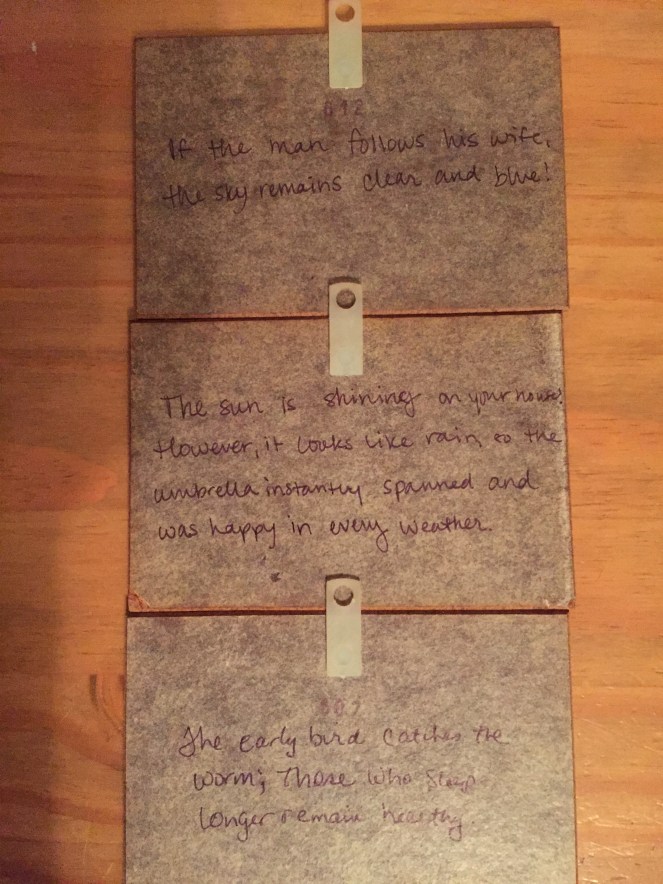 612
If the man follows his wife,
the sky remains clear and blue!
The sun is shining on your house!
However, it looks like rain, so the
umbrella instantly spanned and
was happy in every weather.
The early bird catches the
worm; Those who sleep
longer remain healthy.